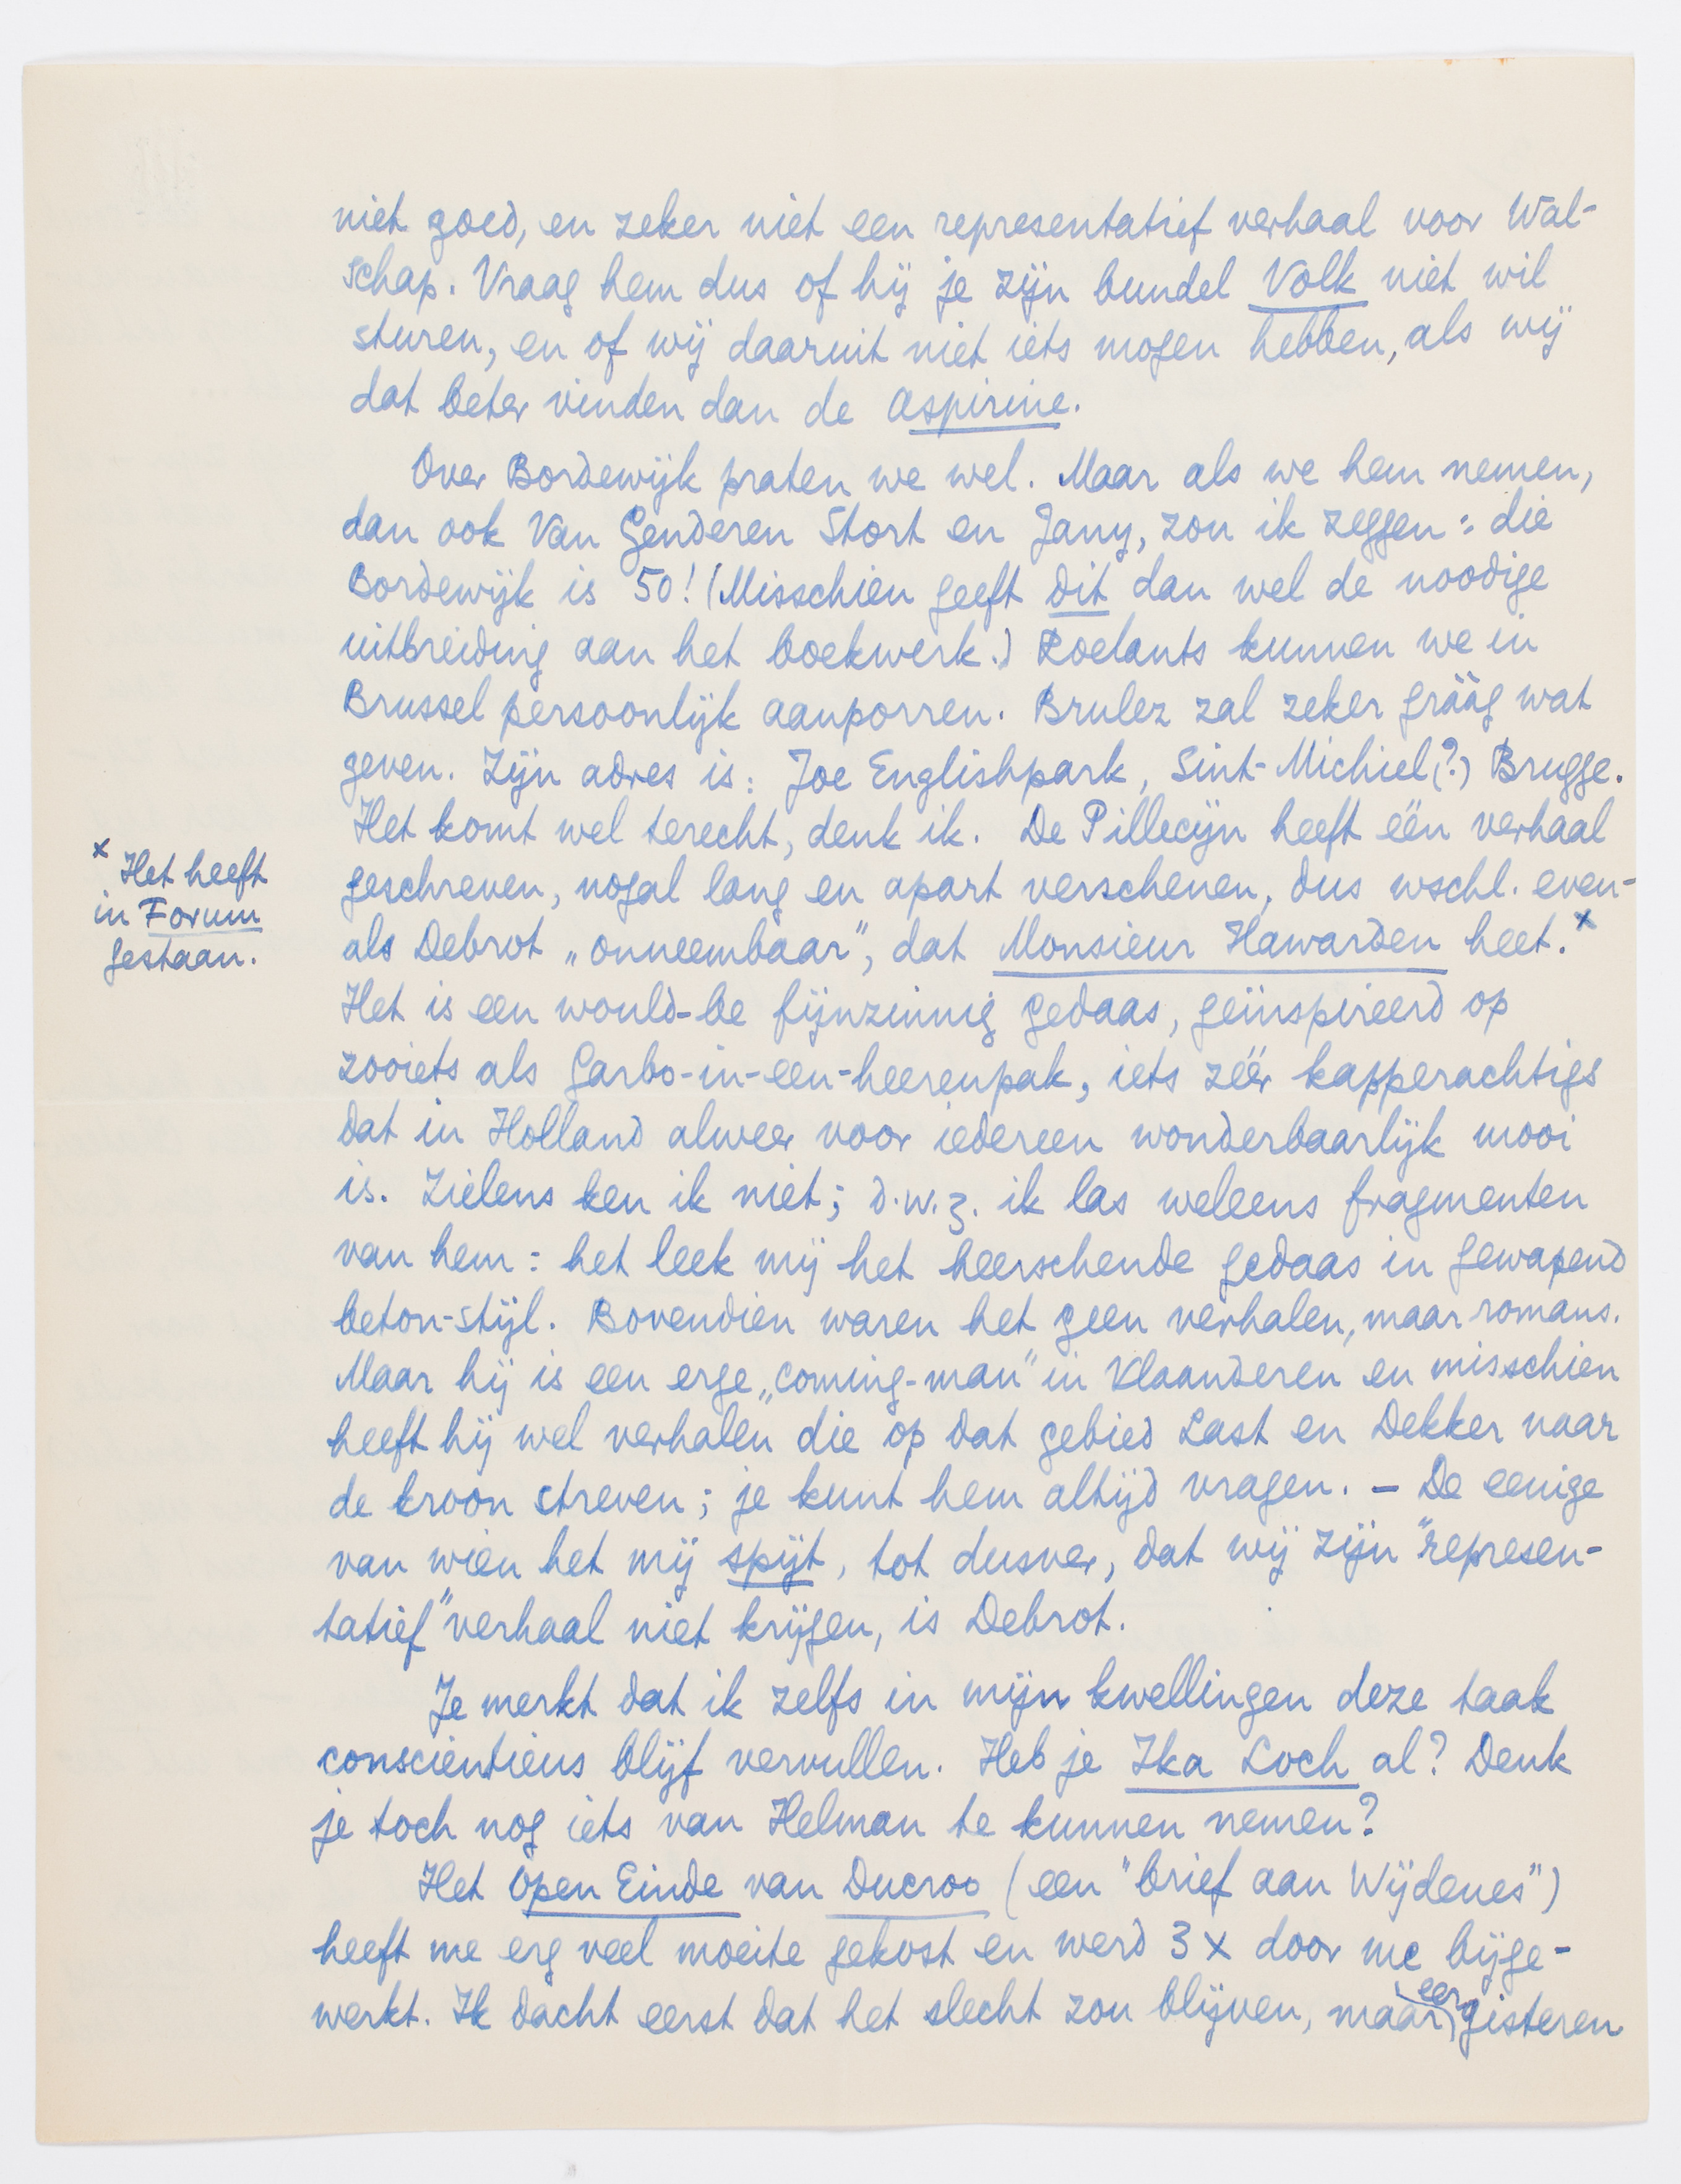 niet goed, en zeker niet een representatief verhaal voor Wal-
schap. Vraag hem dus of hij je zijn bundel Volk niet wil
sturen, en of wij daaruit niet iets mogen hebben, als wij
dat beter vinden dan de aspirine.
Over Bordewijk praten we wel. Maar als we hem nemen,
dan ook Van Genderen Stort en Jany, zou ik zeggen: die
Bordewijk is 50! (Misschien geeft dit dan wel de noodige
uitbreiding aan het boekwerk.) Roelants kunnen we in
Brussel persoonlijk aanporren. Brulez zal zeker gráág wat
geven. Zijn adres is: Joe Englishpark, Sint-Michiel(?) Brugge.
Het komt wel terecht, denk ik. De Pillecijn heeft één verhaal
geschreven, nogal lang en apart verschenen, dus wschl. even-
als Debrot „onneembaar”, dat Monsieur Hawarden heet.x
x Het heeft
in Forum
gestaan.
Het is een would-be fijnzinnig gedaas, geïnspireerd op
zooiets als Garbo-in-een-heerenpak, iets zéér kapperachtigs
dat in Holland alweer voor iedereen wonderbaarlijk mooi
is. Zielens ken ik niet; d.w.z. ik las weleens fragmenten
van hem: het leek mij het heerschende gedaas in gewapend
beton-stijl. Bovendien waren het geen verhalen, maar romans.
Maar hij is een erge „coming-man” in Vlaanderen en misschien
heeft hij wel verhalen die op dat gebied Last en Dekker naar
de kroon streven; je kunt hem altijd vragen. – De eenige
van wien het mij spijt, tot dusver, dat wij zijn "represen-
tatief" verhaal niet krijgen, is Debrot.
Je merkt dat ik zelfs in mijn kwellingen deze taak
consciëntieus blijf vervullen. Heb je Ika Loch al? Denk
je toch nog iets van Helman te kunnen nemen?
Het Open Einde van Ducroo (een "brief aan Wijdenes")
heeft me erg veel moeite gekost en werd 3 x door me bijge-
werkt. Ik dacht eerst dat het slecht zou blijven, maar eergisteren